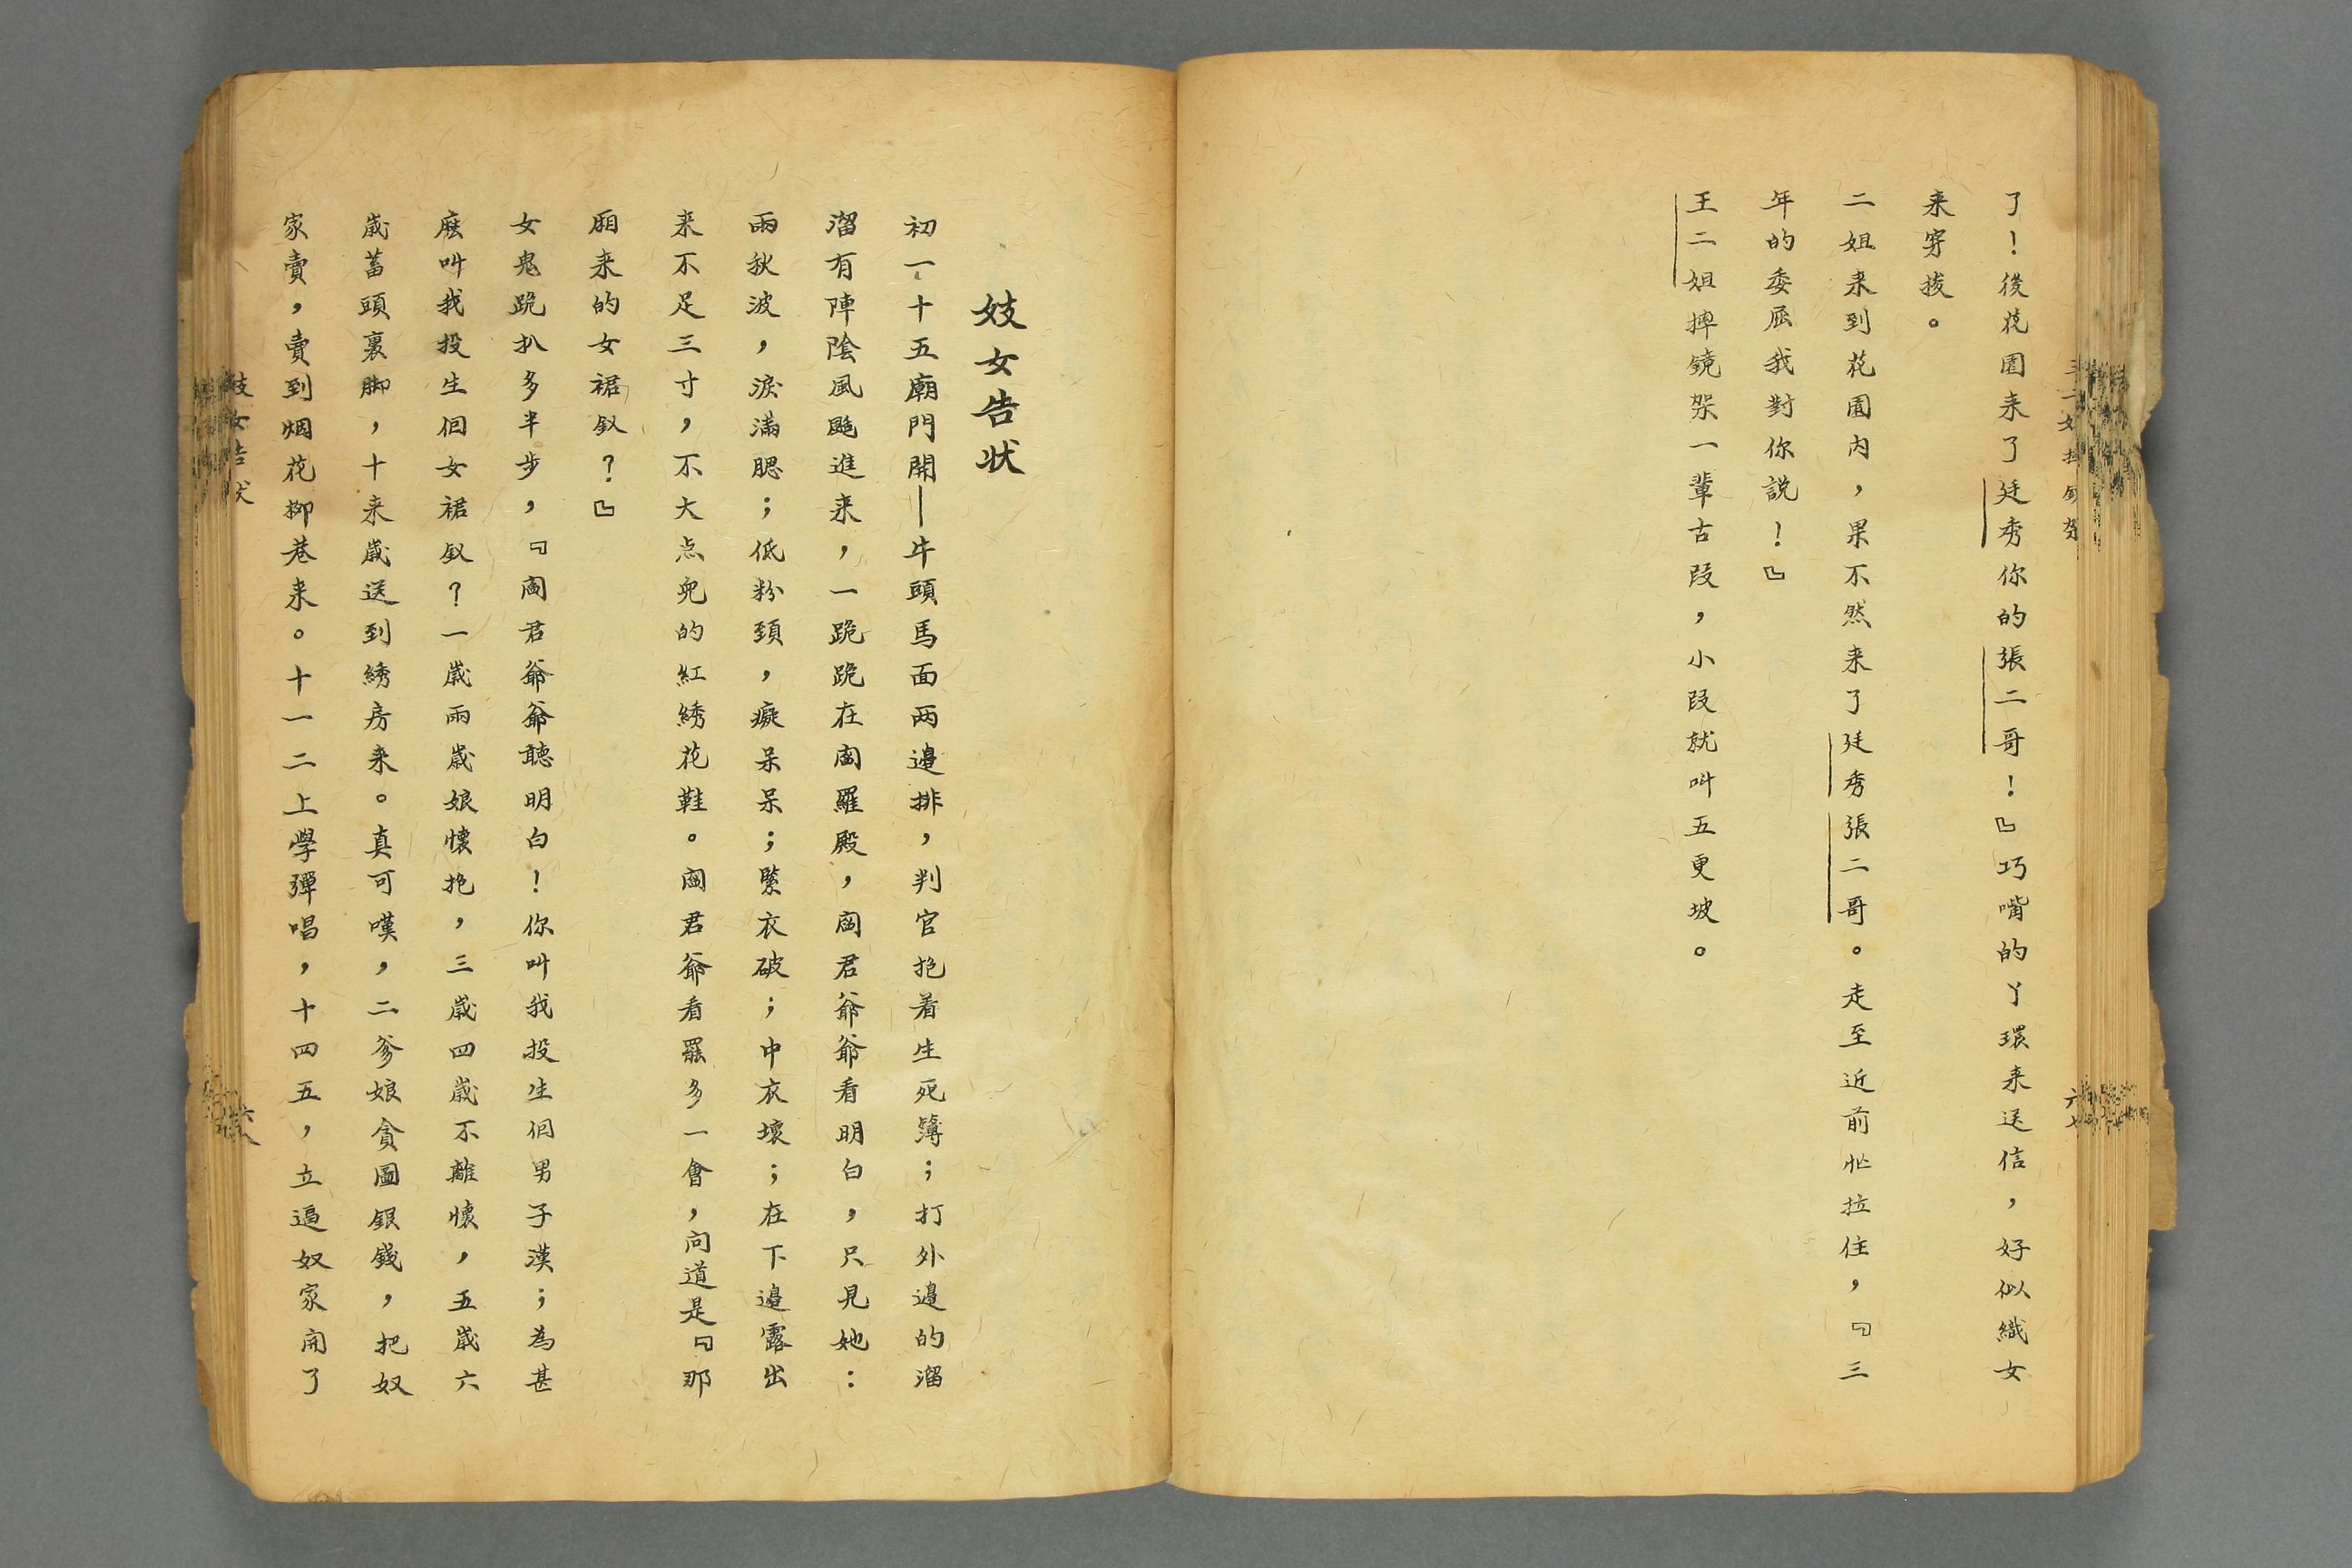 了！後花園来了廷秀你的張二哥！』巧嘴的丫環来送信，好似織女
来穿梭。
二姐来到花園内，果不然来了廷秀張二哥。走至近前忙拉住，『三
年的委屈我對你説！』
王二姐摔鏡架一輩古段，小段就叫五更坡。
六七
妓女告状
初一、十五廟門開——牛頭馬面两邉排，判官抱着生死簿；打外邉的溜
溜有陣陰風颱進来，一跪跪在閻羅殿，閻君爺爺看明白，只見她：
兩秋波，淚滿腮；低粉頸，癡呆呆；緊衣破；中衣壞；在下邉露出
来不足三寸，不大点兒的紅綉花鞋。閻君爺看罷多一會，问道是『那
廂来的女裙釵？』
女鬼跪扒多半步，『閻君爺爺聽明白！你叫我投生個男子漢；為甚
麽叫我投生個女裙釵？一歲兩歲娘懷抱，三歲四歲不離懷，五歲六
歲蓄頭裹脚，十来歲送到綉房来。真可嘆，二爹娘貪圖銀錢，把奴
家賣，賣到烟花柳巷来。十一二上學彈唱，十四五，立逼奴家開了
妓女告状
六八